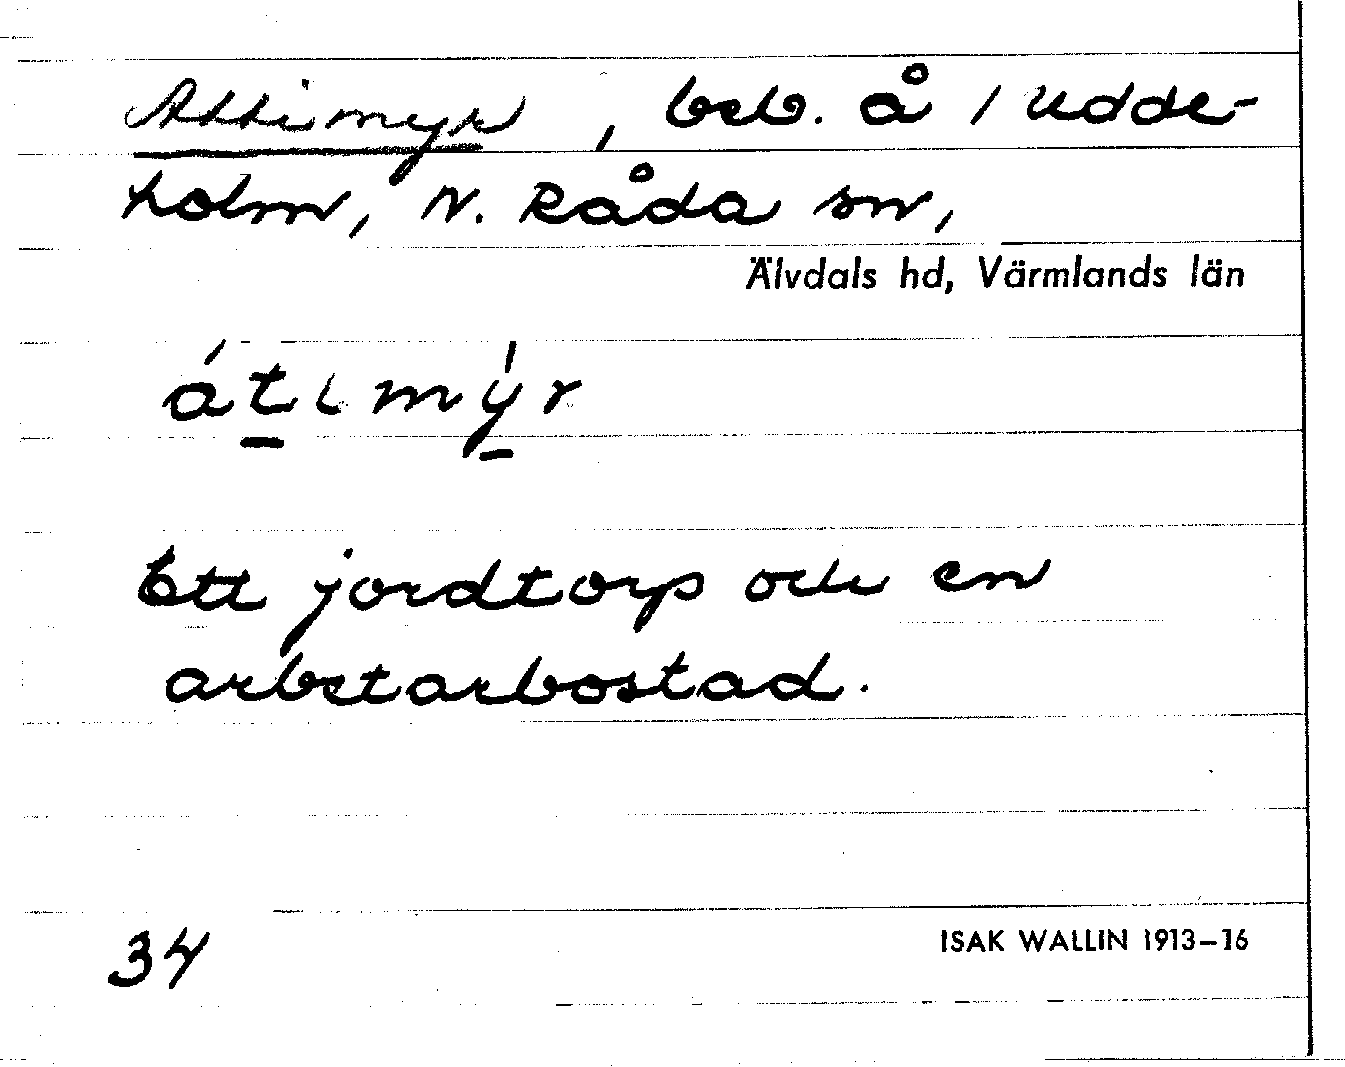 Attimyr, beb. å 1 Udde-
holm, N. Råda sn,
Älvdals hd, Värmlands län
átimy̍r
Ett jordtorp och en
arbetarbostad.
34
ISAK WALLIN 1913–16